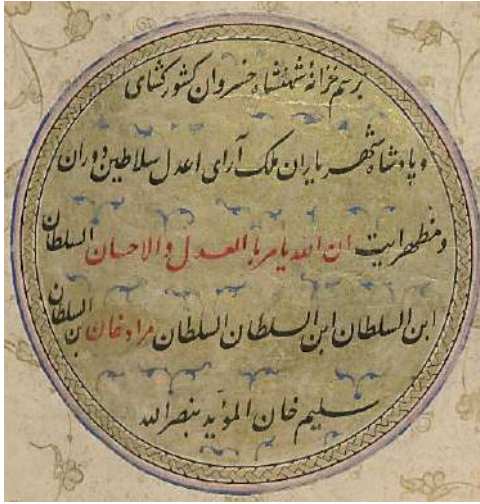 برسم خزانهٔ شهنشاه خسروان کشورکشای
و پادشاه شهریاران ملک آرای اعدل سلاطین دوران
و مظهر ایت ان الله یامر بالعدل والاحسان السلطان
ابن السلطان ابن السلطان السلطان مراد خان بن السلطان
سلیم خان المؤید بنصرالله